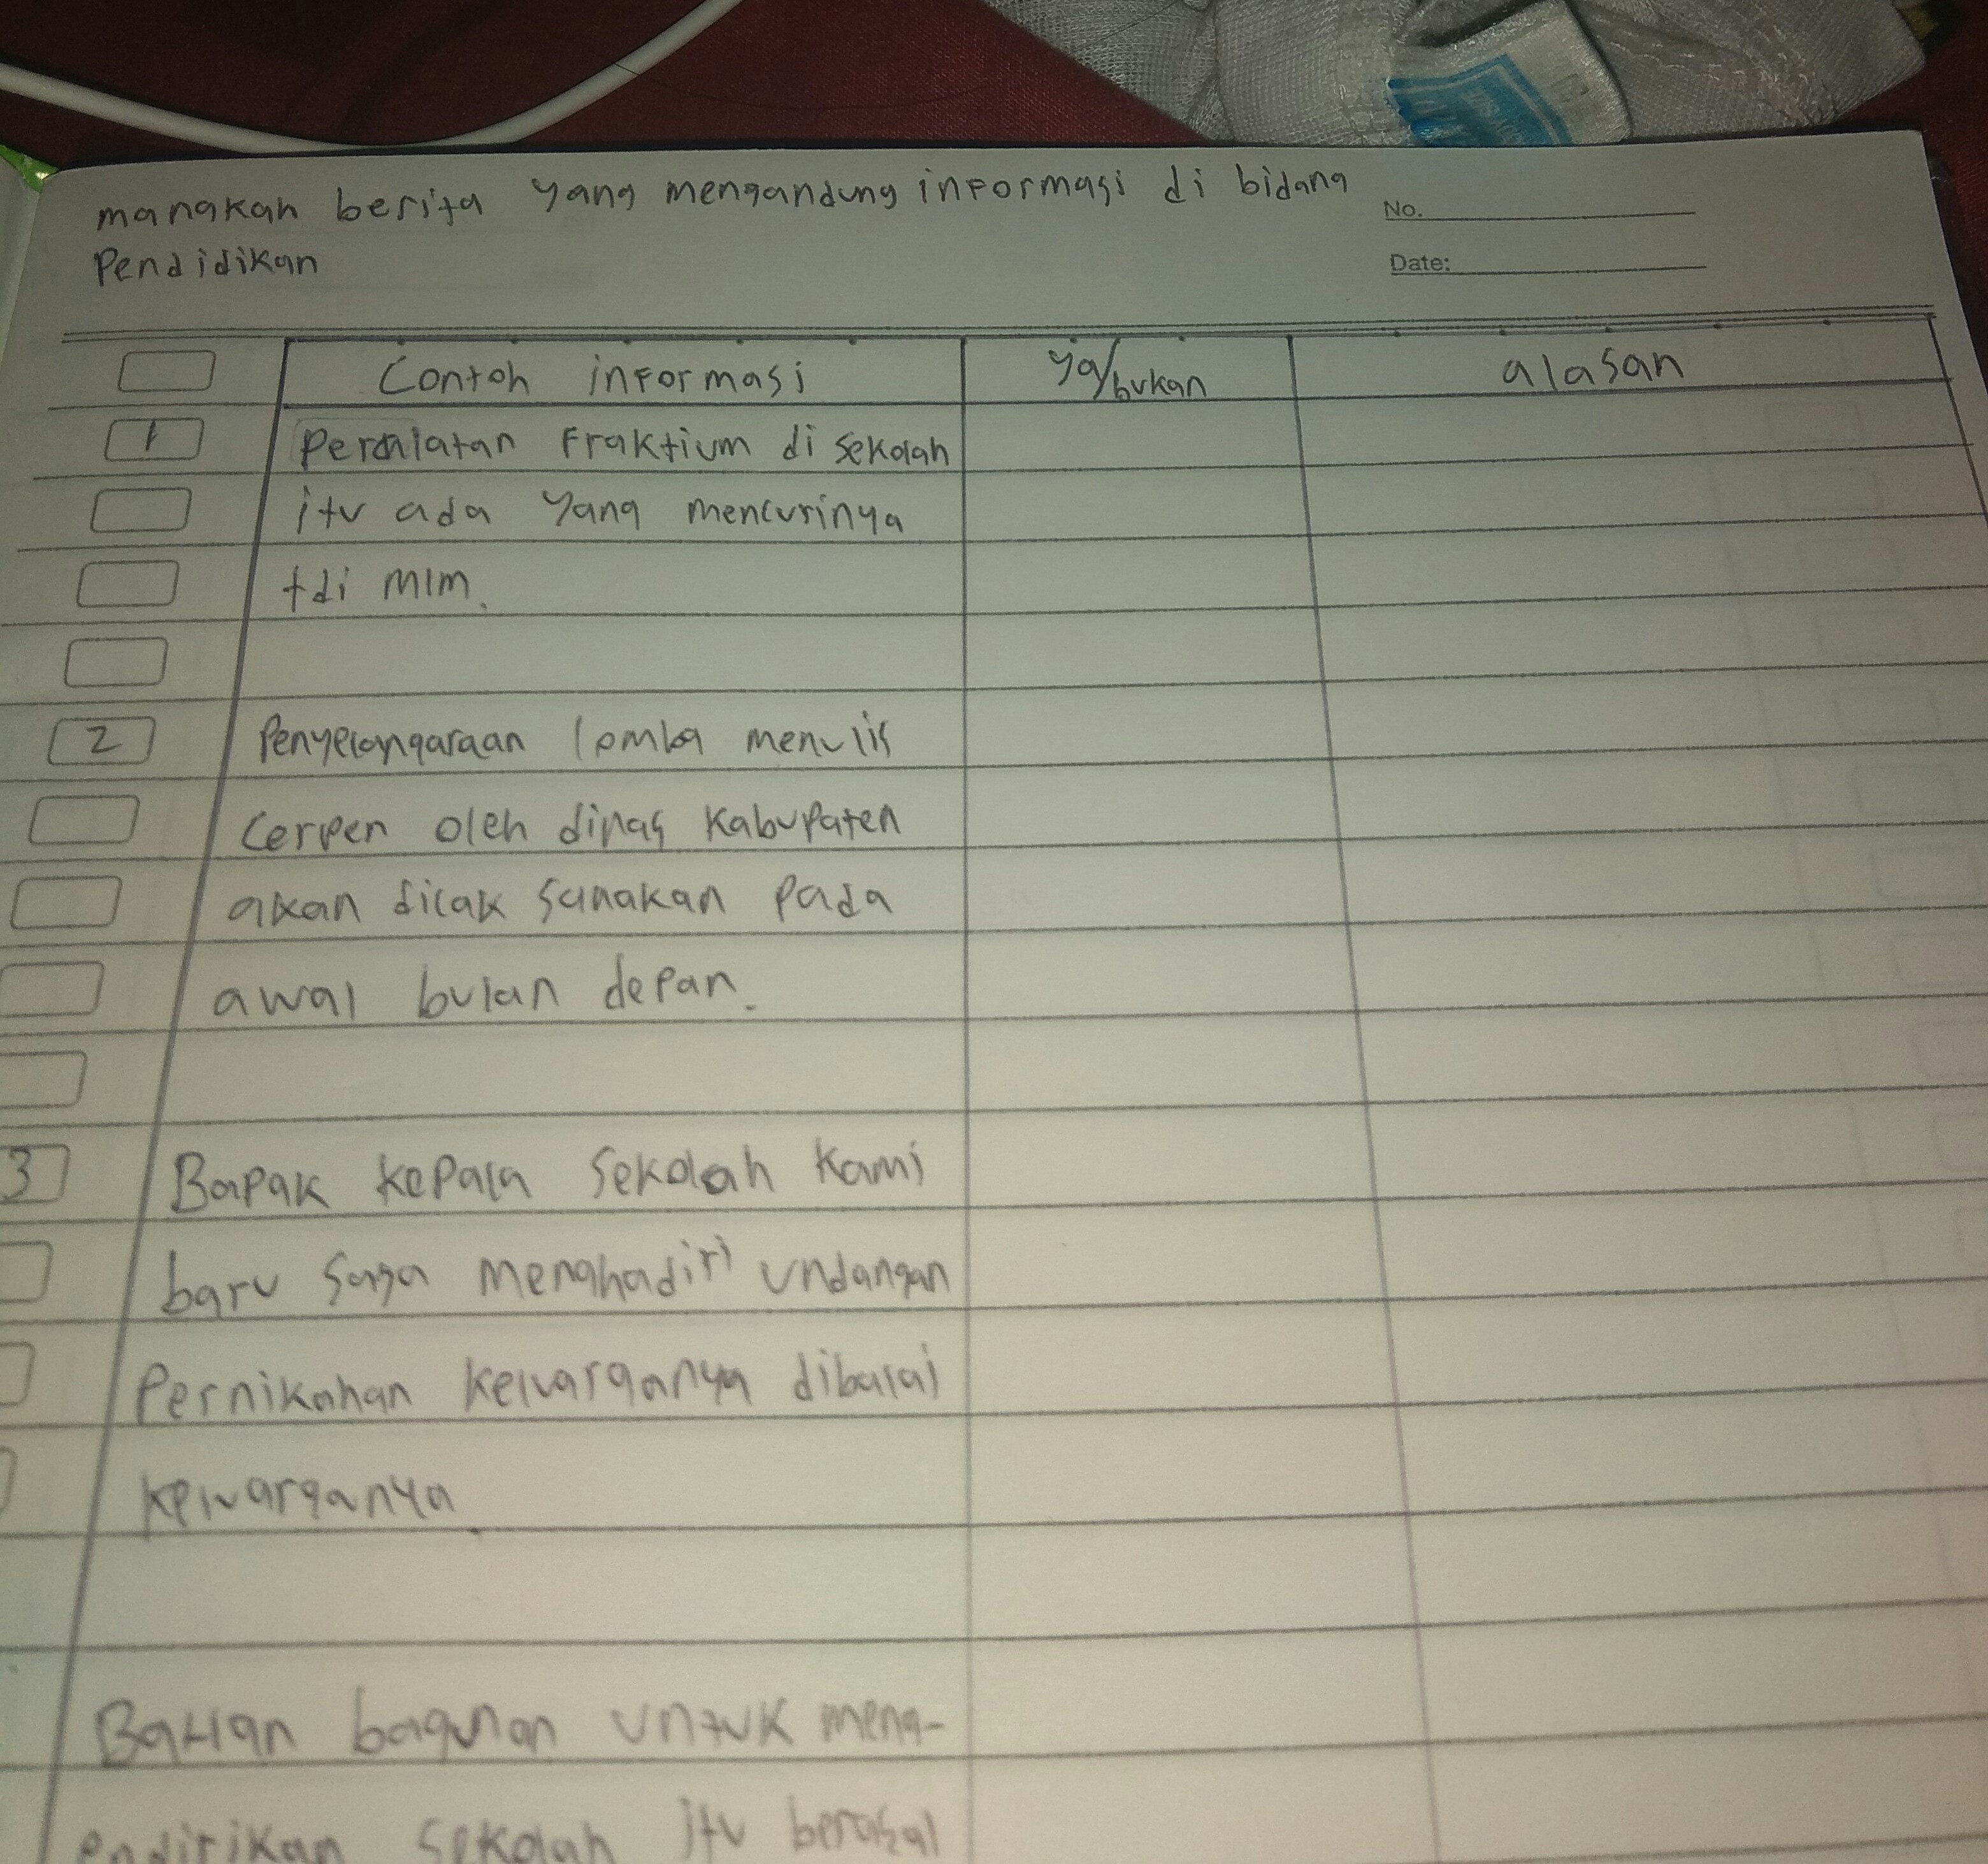 manakah berita yang mengandung informasi di bidang
Pendidikan
No.
Date:
Contoh informasi
ya/bukan
alasan
1
Peralatan Fraktium di sekolah
itu ada yang mencurinya
tdi mlm.
2
Penyelongaraan lomba menulis
Cerpen oleh dinas Kabupaten
akan dilak sanakan Pada
awal bulan depan.
3
Bapak kepala sekolah kami
baru saja menghadiri undangan
Pernikahan keluarganya dibalai
keluarganya
Bahan bagunan untuk meng-
endirikan sekolah itu berasal